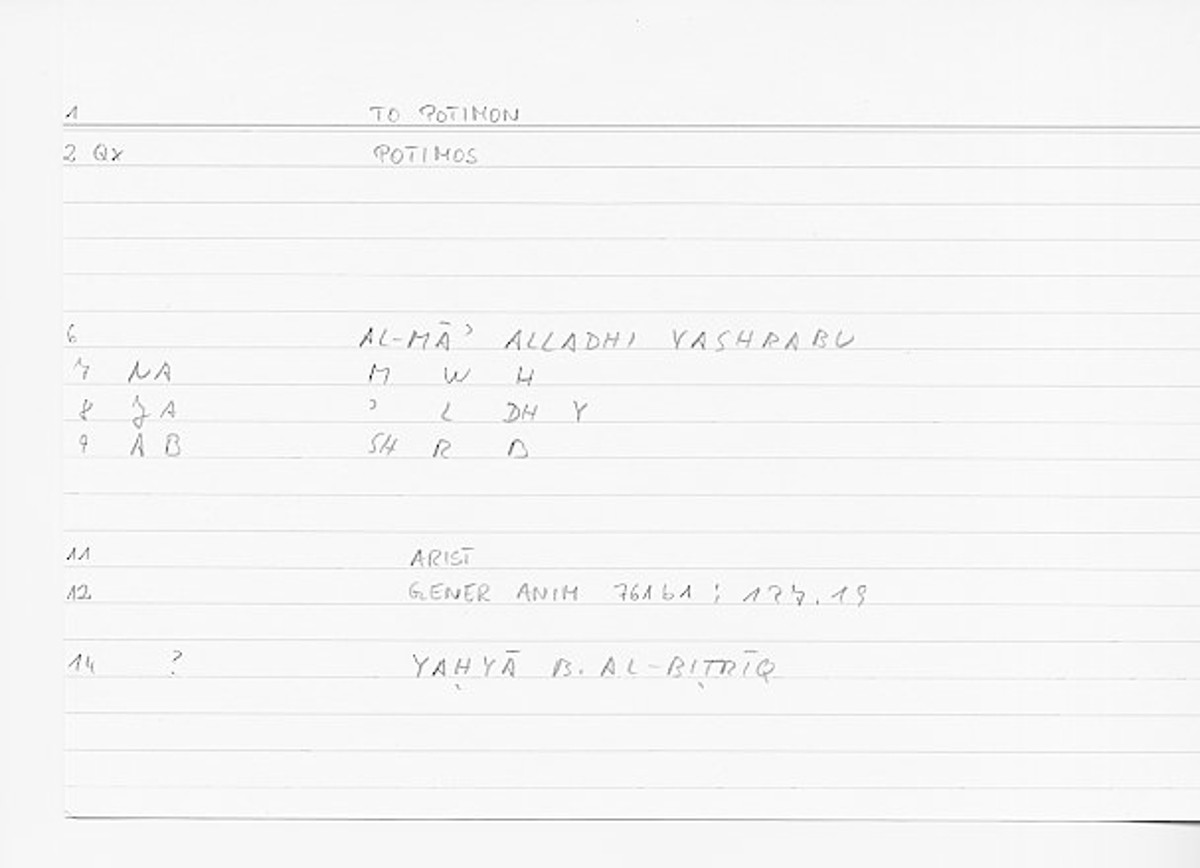 1 TO POTIMON
2 Qx POTIMOS
6 AL-MĀʾ ALLADHI YASHRABU
7 NA M W H
8 ZA ʾ L DH Y
9 AB SH R B
11 ARIST
12 GENER ANIM 761b1 ; 127.19
14 ? YAḤYĀ B. AL-BIṬRĪQ